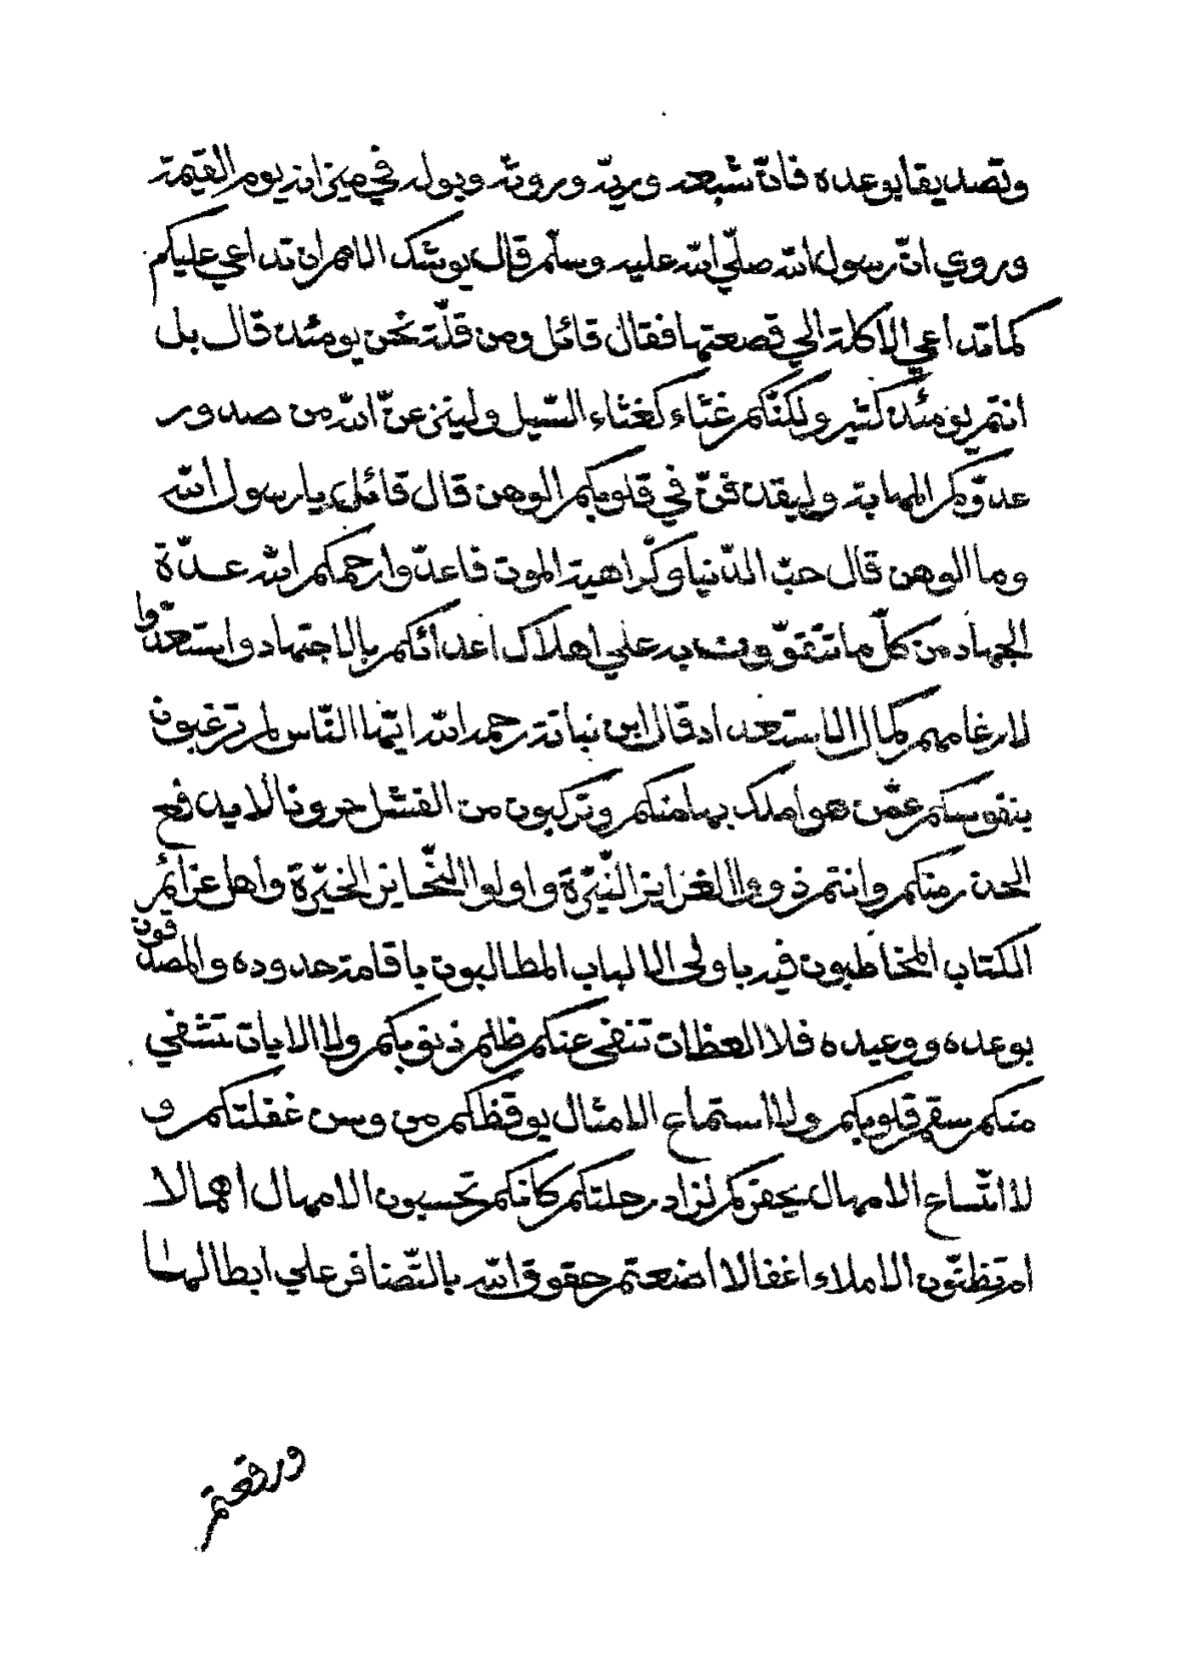 وتصديقا بوعده فانّ شبعه وريّه وروثه وبوله في ميزانه يوم القيمة
وروي انّ رسول الله صلّي الله عليه وسلّم قال يوشك الامم ان تداعي عليكم
كما تداعي الاكلة الي قصعتها فقال قائل ومن قلّة نحن يومئذ قال بل
انتم يومئذ كثير ولكنّكم غثاء كغثاء السّيل ولينزعنّ الله من صدور
عدوّكم المهابة وليقذفنّ في قلوبكم الوهن قال قائل يا رسول الله
وما الوهن قال حبّ الدّنيا وكراهية الموت فاعدّوا رحمكم الله عدّة
الجهاد من كلّ ما تتقوّون به علي اهلاك اعدائكم بالاجتهاد واستعدّوا
لارغامهم بكمال الاستعداد قال ابن نباتة رحمه الله ايّها النّاس لم ترغبون
بنفوسكم عمّن هو أملك بها منكم وتركبون من الفشل حرونا لا يدفع
الحذر منكم وانتم ذووا الغرايز النّيّرة واولوا النّحايز الخيّرة وأهل عزائم
الكتاب المخاطبون فيه باولى الالباب المطالبون باقامة حدوده والمصدّقون
بوعده ووعيده فلا العظات تنفى عنكم ظلم ذنوبكم ولا الايات تشفي
منكم سقم قلوبكم ولا استماع الامثال يوقظكم من وسن غفلتكم و
لا اتّساع الامهال يحفزكم لزاد رحلتكم كانكم تحسبون الامهال اهمالا
ام تظنّون الاملاء اغفالا اضعتم حقوق الله بالتّضافر علي ابطالها
ورفعتم